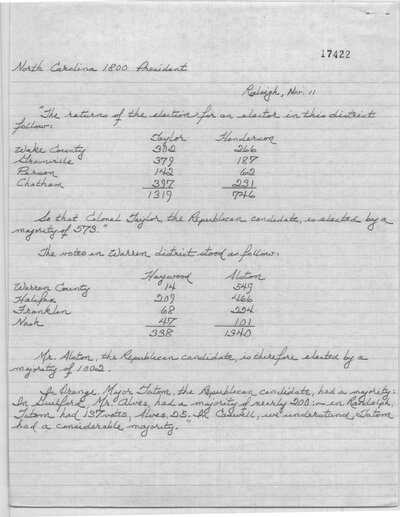 17422
North Carolina 1800 President
Raleigh, Nov. 11
"The returns of the election for an elector in this district
follow:
Taylor Henderson
Wake County 302 266
Granville 379 187
Person 142 62
Chatham 397 231
1319 746
So that Colonel Taylor, the Republican candidate, is elected by a
majority of 573."
The votes in Warren district stood as follow:
Haywood Alston
Warren County 14 549
Halifax 209 466
Franklin 68 224
Nash 47 101
338 1340
Mr. Alston, the Republican candidate, is therefore elected by a
majority of 1002.
In Orange, Major Tatom, the Republican candidate, had a majority:
In Guilford, Mr. Alves, had a majority of nearly 200:— in Randolph,
Tatom had 137 votes, Alves, 25. In Caswell, we understand, Tatom
had a considerable majority."